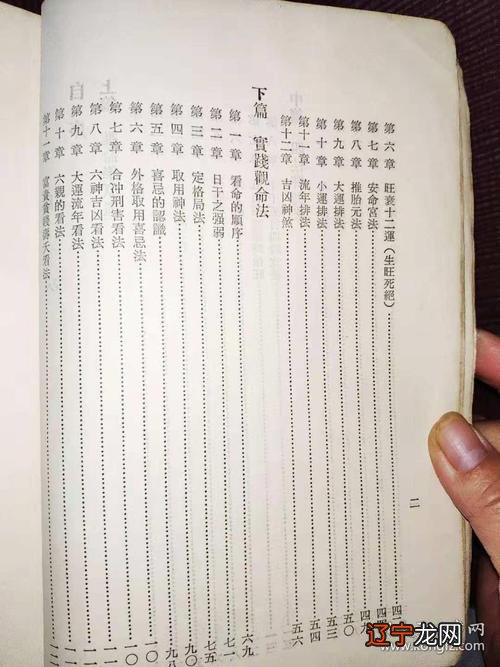 第六章 旺衰十二運（生旺死絕）
第七章 安命宮法
第八章 推胎元法 四
第九章 大運排法 五〇
第十章 小運排法 五三
第十一章 流年排法 五四
第十二章 吉凶神煞 五六
下篇 實踐觀命法
第一章 看命的順序 六九
第二章 日干之强弱 七一
第三章 定格局法 七五
第四章 取用神法 九八
第五章 喜忌的認識
第六章 外格取用喜忌法 一〇
第七章 合冲刑害看法 一〇
第八章 六神吉凶看法
第九章 大運流年看法
第十章 六親的看法
第十一章 富貴貧賤壽夭看法
二
辽宁龙网